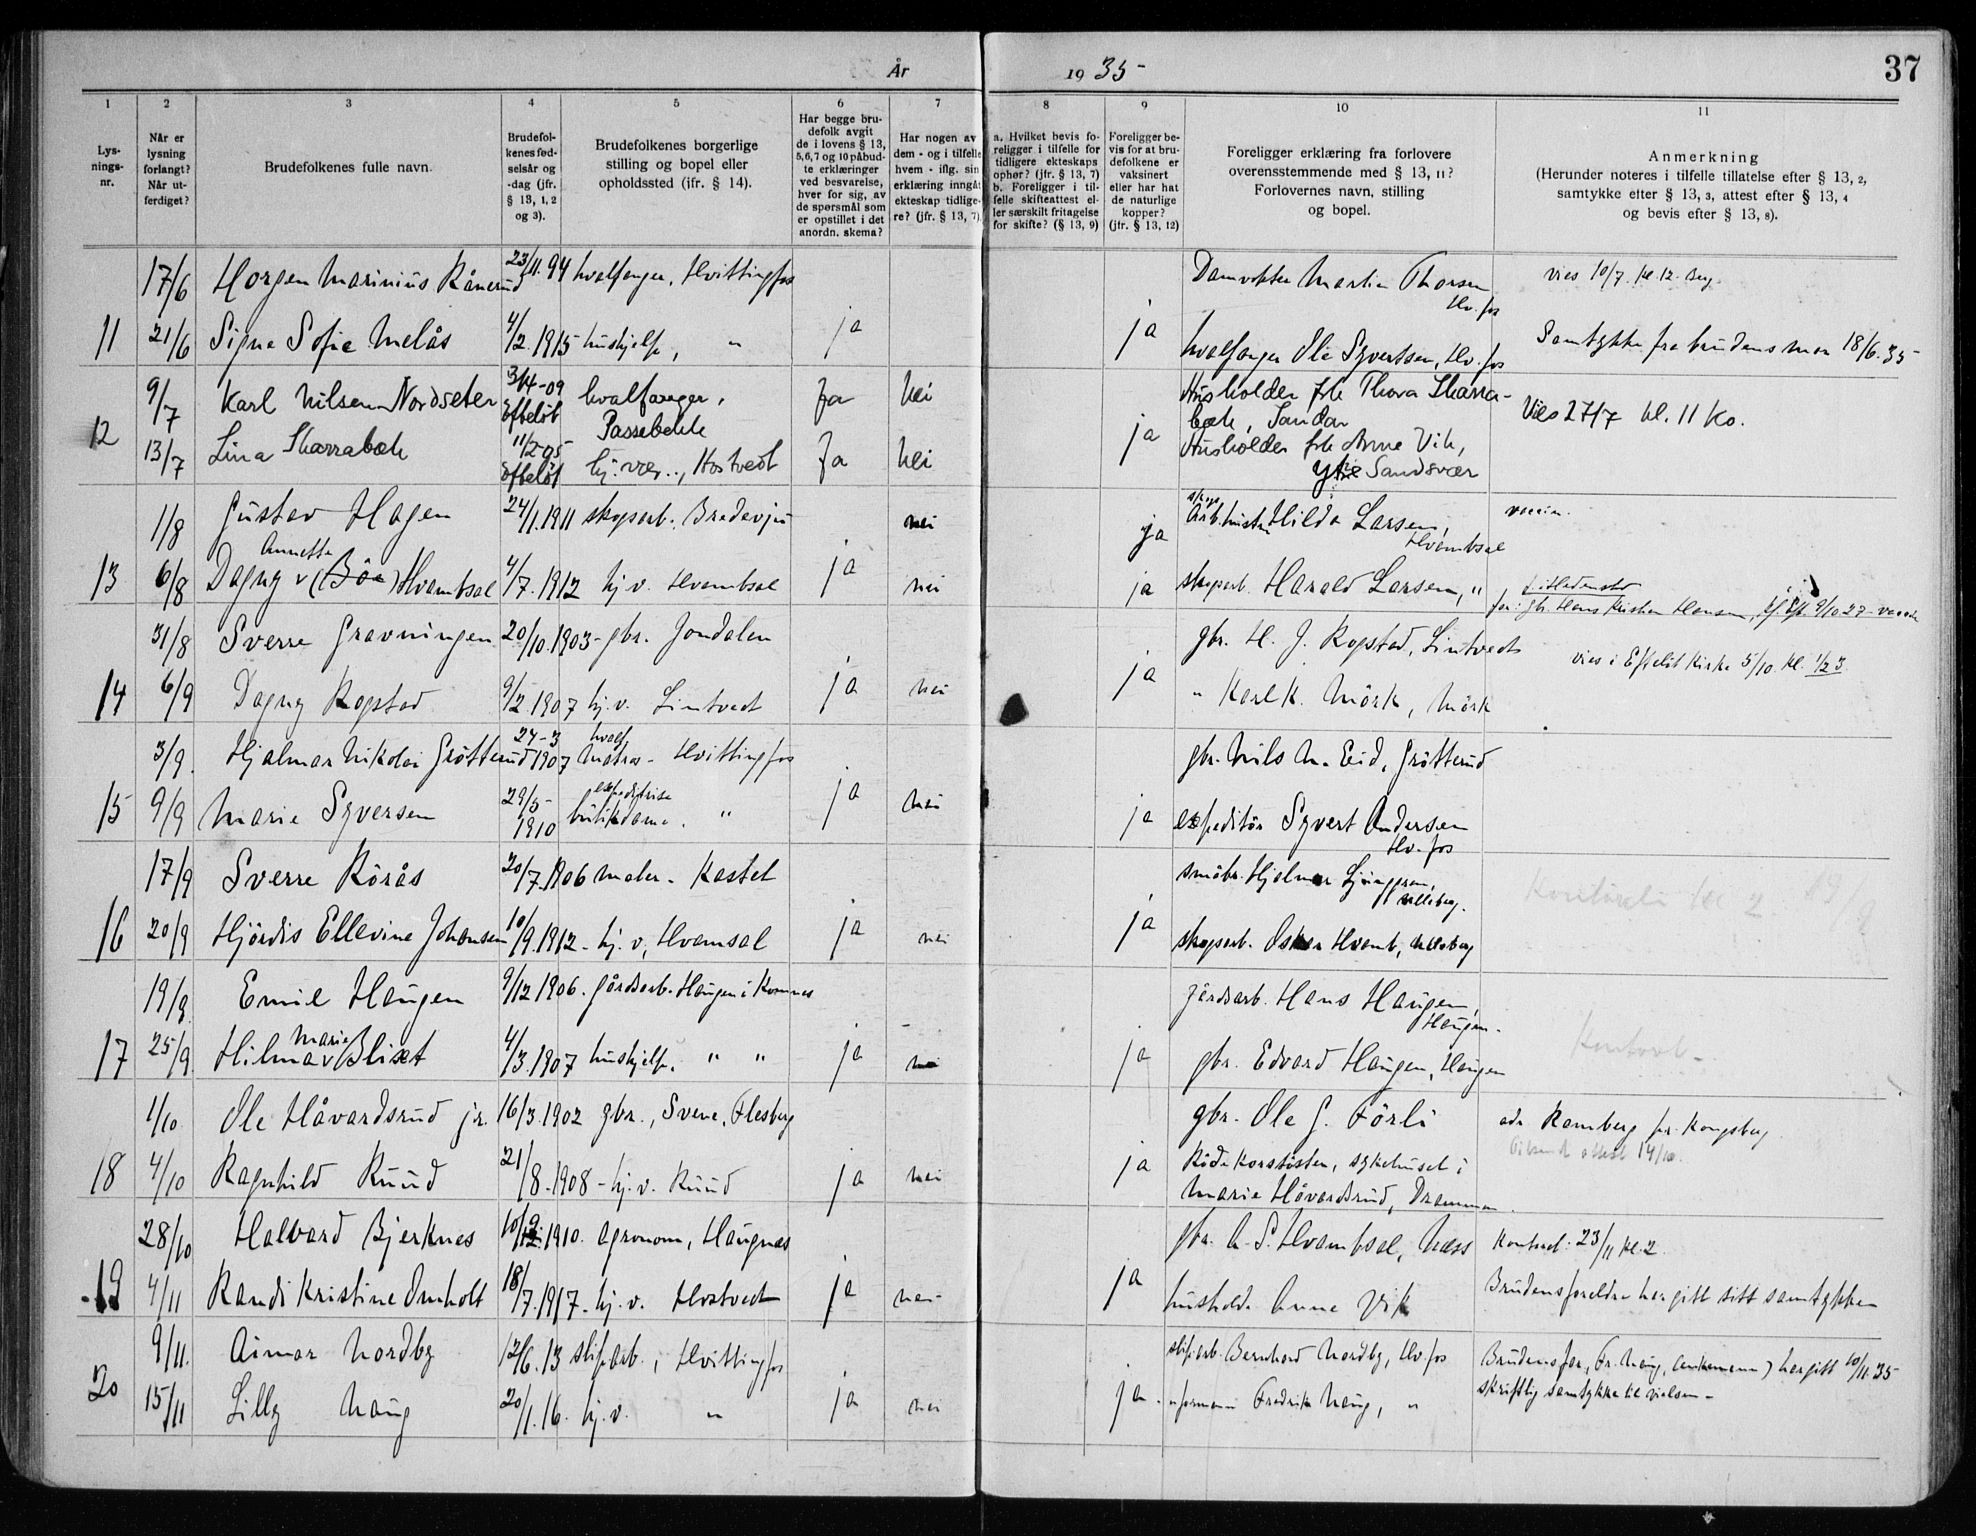 År 1935-
37
1 2 3 4 5 6 7 8 9 10 11
Lys-
nings-
nr.
Når er
lysning
forlangt?
Når ut-
ferdiget?
Brudefolkenes fulle navn.
Brudefol-
kenes fød-
selsår og
-dag (jfr.
§ 13, 1, 2
og 3).
Brudefolkenes borgerlige
stilling og bopel eller
opholdssted (jfr. § 14).
Har begge bru-
defolk avgit
de i lovens § 13,
5, 6, 7 og 10 påbud-
te erklæringer
ved besvarelse,
hver for sig, av
de spørsmål som
er opstillet i det
anordn. skema?
Har nogen av
dem - og i tilfelle
hvem - iflg. sin
erklæring inngått
ekteskap tidlige-
re? (jfr. § 13, 7)
a. Hvilket bevis fo-
religger i tilfelle for
tidligere ekteskaps
ophør? (jfr. § 13, 7)
b. Foreligger i til-
felle skifteattest el-
ler særskilt fritagelse
for skifte? (§ 13, 9)
Foreligger be-
vis for at bru-
defolkene er
vaksinert
eller har hat
de naturlige
kopper?
(jfr. § 13, 12)
Foreligger erklæring fra forlovere
overensstemmende med § 13, 11?
Forlovernes navn, stilling
og bopel.
Anmerkning
(Herunder noteres i tilfelle tillatelse efter § 13, 2,
samtykke etter § 13, 3, attest efter § 13, 4
og bevis efter § 13, 8).
17/6 Horgen Marinius Rånerud 23/11.94 hvalfanger, Hvittingfos Damvokter Martin Thorsen Hv.fos vies 10/7. kl. 12.
11 21/6 Signe Sofie Melås 4/2.1915 hushjelp, " ja ja hvalfanger Ole Syvertsen, Hv.fos Samtykke fra brudens mor 18/6.35-
9/7 Karl Nilsen Nordseter 3/4-09 Efteløt hvalfanger, Passebekk Ja Nei Husholder frk Thora Skarra-
bæk, Sandar Vies 27/7 kl. 11 Ko.
12 13/7 Lina Skarrabæk 11/2-05 Efteløt hj. vær.., Hostvedt Ja Nei ja Husholder frk Anne Vik,
Sandsvær
1/8 Gustav Hagen 24/1.1911 skogsarb. Bredevju nei ja Hilda Larsen, Hvambsal vaccin.
13 6/8 Dagny Annette (Bøe) Hvambsal 4/7.1912 hj.v. Hvambsal ja nei ja skogsarb. Harald Larsen, "
far: gbr. Hans Kristian Hansen, 9/10 27-
31/8 Sverre Gravningen 20/10.1903- gbr. Jondalen gbr. H. J. Rogstad, Lintvedt vies i Efteløt kirke 5/10. kl. 1/2 3
14 6/9 Dagny Rogstad 9/2.1907 hj.v. Lintvedt ja nei ja " Karl K. Mörk, Mörk
3/9. Hjalmar Nikolai Grötterud 27-3 1907 hvalf matros- Hvittingfos gbr. Nils N. Eid, Grötterud
15 9/9 Marie Syversen 29/5- 1910 butikdame. " ja nei ja expeditør Syvert Andersen Hv.fos
17/9 Sverre Rörås 20/7.1906 maler- Kastet småbr. Hjalmar Ljunggren,
16 20/9 Hjördis Ellevine Johansen 10/9.1912- hj.v, Hvamsal ja nei ja skogsarb. Oskar Hvamb,
19/9. Emil Haugen 9/12 1906. Gårdsarb. Haugen i Komnes Gårdsarb. Hans Haugen, Haugen-
17 25/9 Hilma Marie Blixt 4/3.1907 hushjelp. " " ja nei ja gbr. Edvard Haugen, Haugen
1/10 Ole Håvardsrud jr. 16/3.1902 gbr., Svene, Flesberg gbr. Ole G. Förli adr Ramberg pr. Kongsberg
18 4/10 Ragnhild Ruud 21/8.1908- hj.v. Ruud ja nei ja Röde korssöster, sykehuset i
Marie Håvardsrud, Drammen
28/10 Halvard Bjerknes 1910. agronom, Haugnes gbr. A. S. Hvambsal, Næss Kontral: 23/11 kl. 2
19 4/11 Randi Kristine Omholt 18/7.1917- hj.v. Hostvedt ja nei ja husholder Anne Vik Brudens foreldre har gitt sitt samtykke
9/11. Aimar Nordby 12/6.13 sliperiarb., Hvittingfos sliperiarb. Bernhard Nordby, Hv.fos Brudens far, Fr. Naug, har gitt 10/11.35
20 15/11 Lilly Naug 20/1.16. hj.v. " ja nei ja. formann Fredrik Naug, " skriftlig samtykke til vielsen-